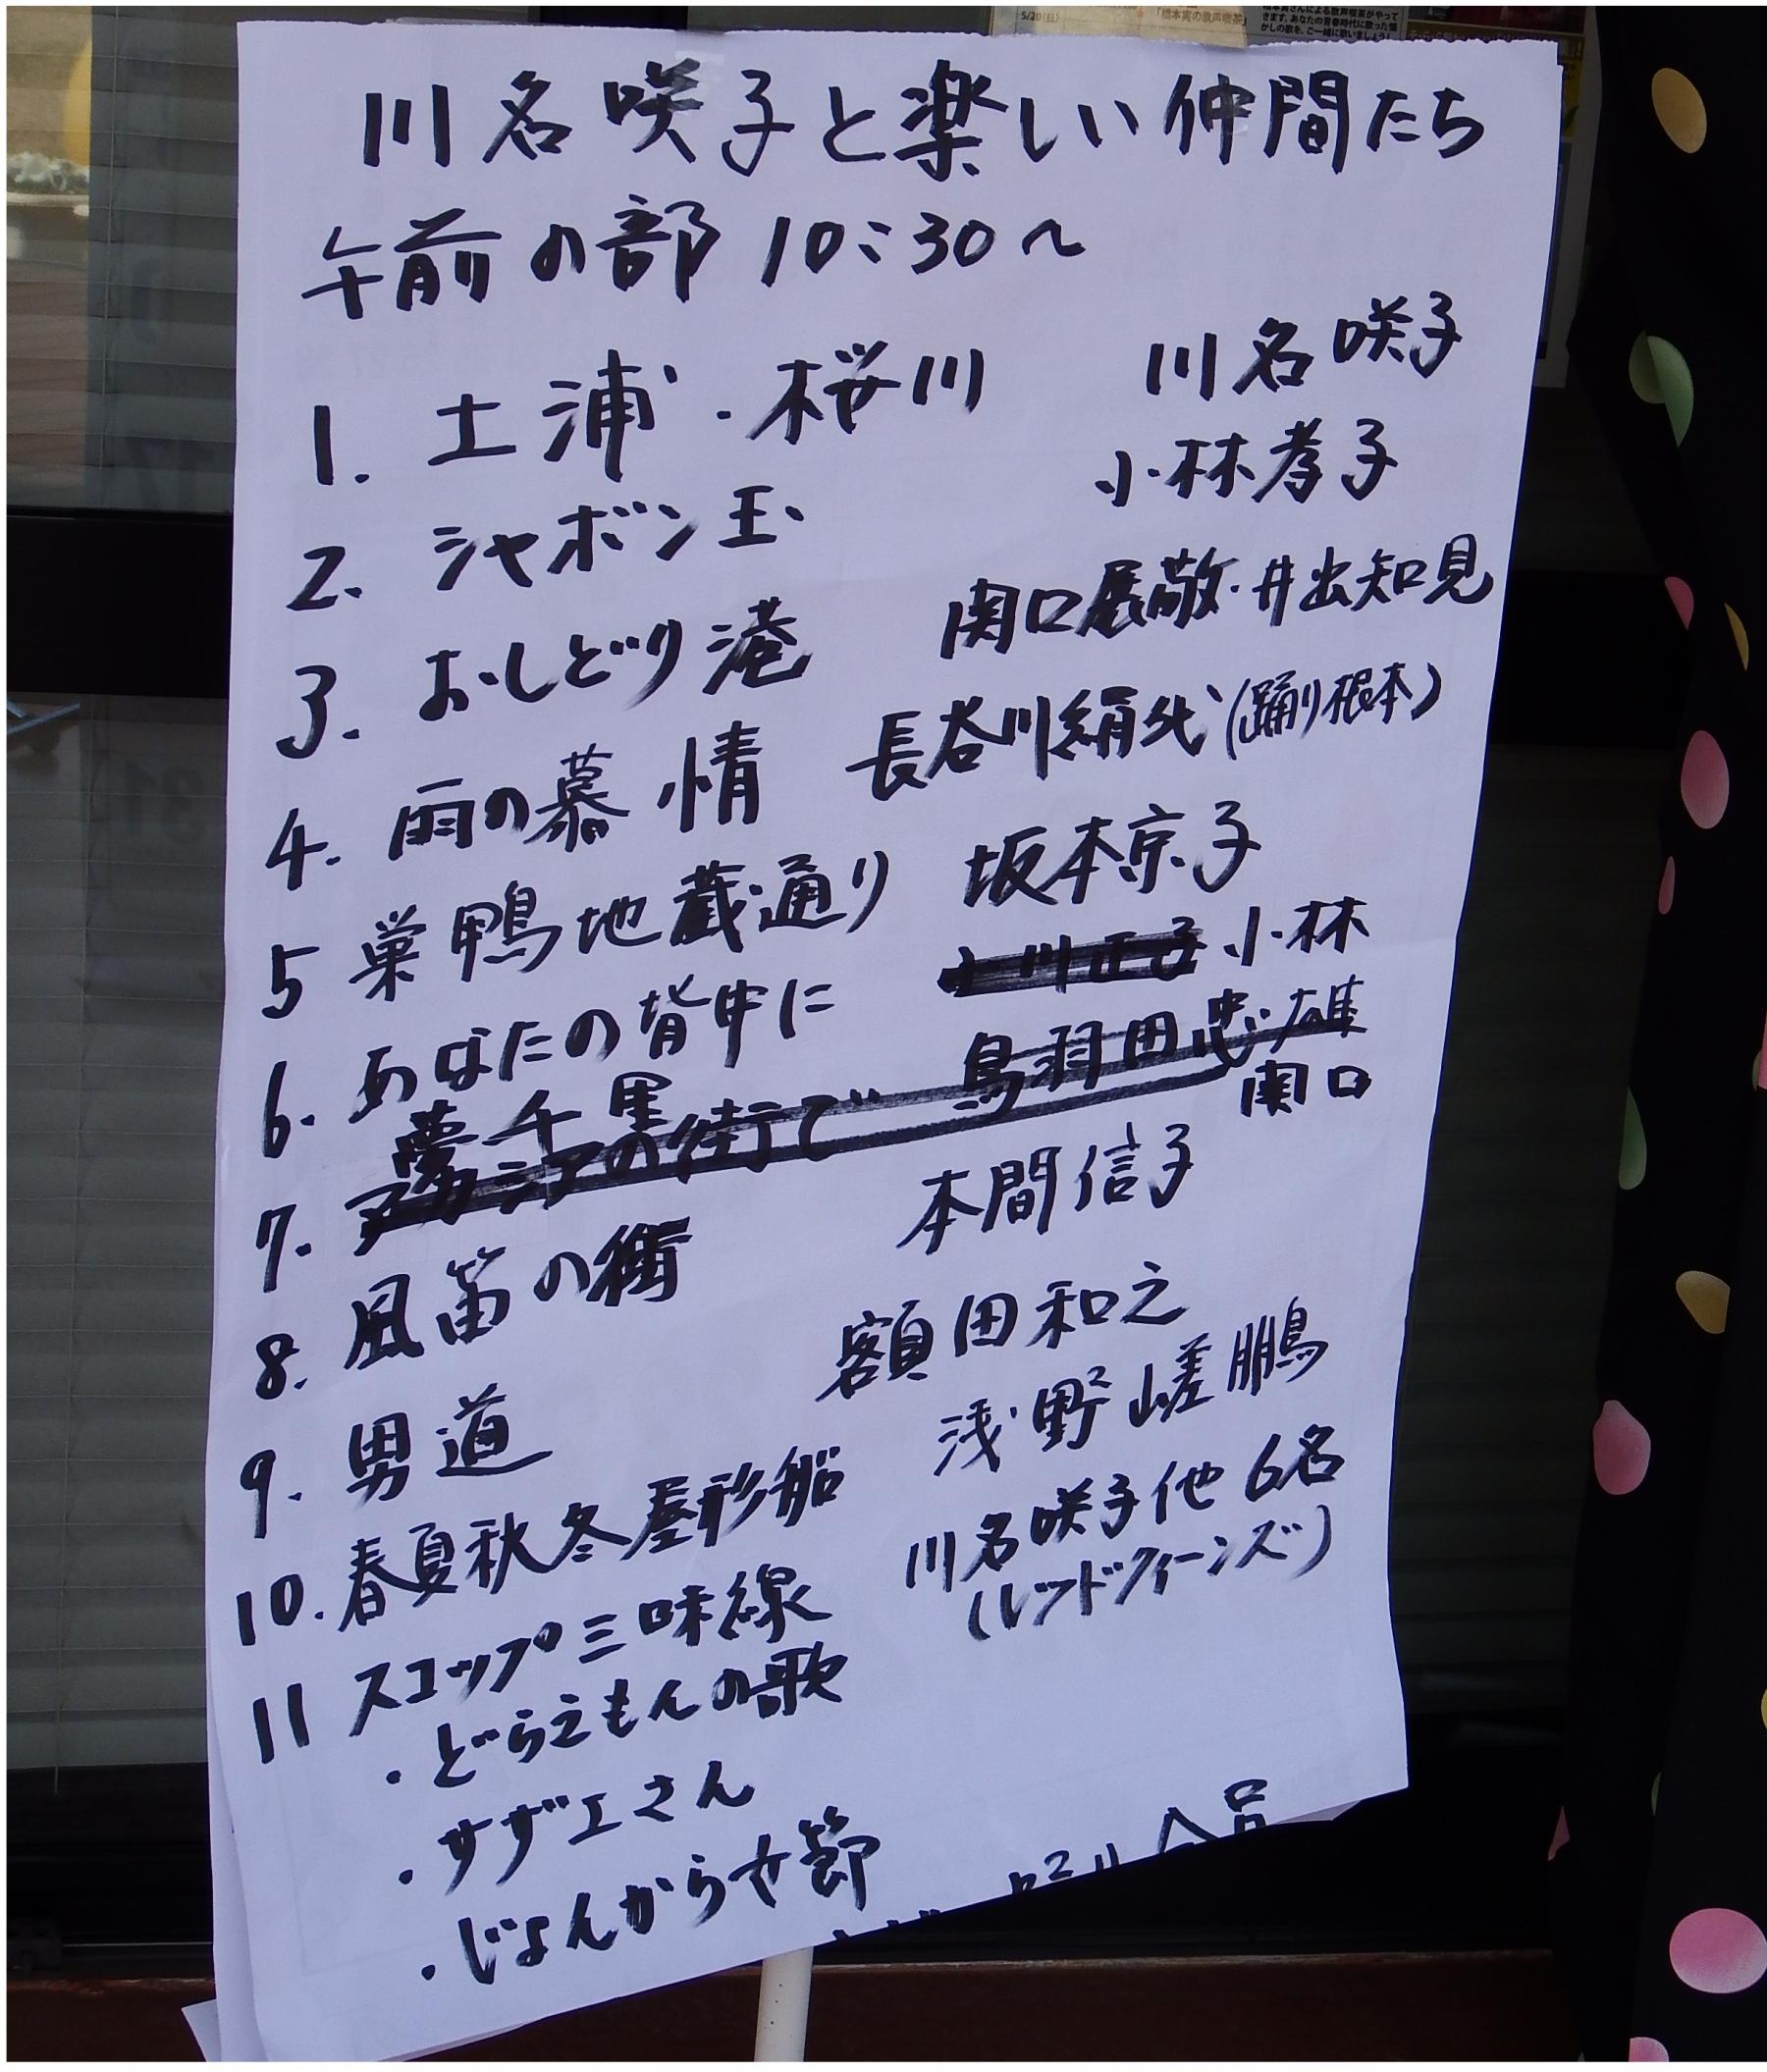 5/20(日)
「橋本実の歌声喫茶」
川名咲子と楽しい仲間たち
午前の部 10:30~
1. 土浦・桜川 川名咲子
2. シャボン玉 小林孝子
3. おしどり港 関口展敬・井出知見
4. 雨の慕情 長谷川絹代(踊り根本)
5 巣鴨地蔵通り 坂本京子
6. あなたの背中に 小川正子 小林
夢千里
7. アカシアの街で 鳥羽田忠雄
関口
8. 風笛の街 本間信子
9. 男道 額田和之
10. 春夏秋冬屋形船 浅野嵯鵬
11 スコップ三味線 川名咲子他6名
(レッドクィーンズ)
・どらえもんの歌
・サザエさん
・じょんからせ節